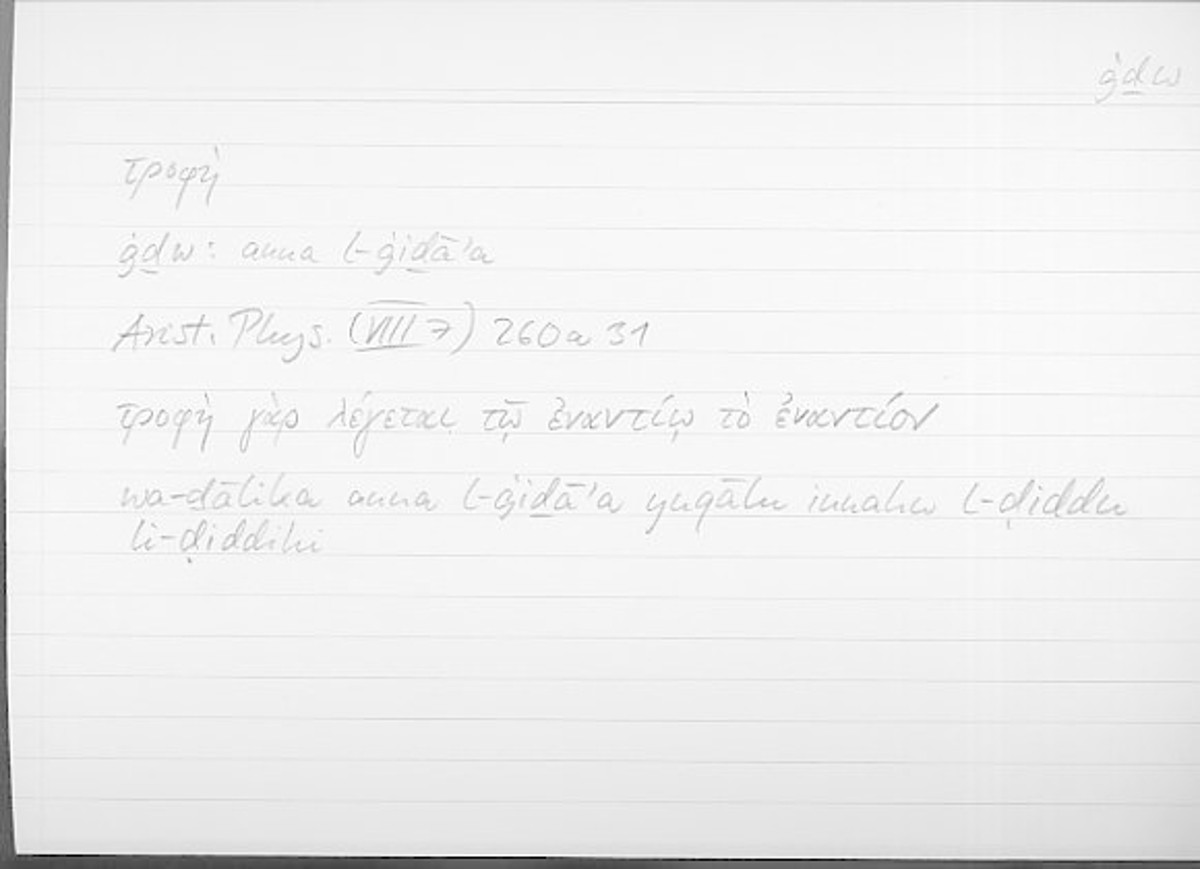 ġḏw
τροφή
ġḏw: anna l-ġiḏā'a
Arist. Phys. (VIII 7) 260a 31
τροφὴ γὰρ λέγεται τῷ ἐναντίῳ τὸ ἐναντίον
wa-ḏālika anna l-ġiḏā'a yuqālu innahu l-ḍiddu
li-ḍiddihi